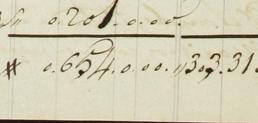 0.201.0.00.
# 0.654.0.00. 11303.31